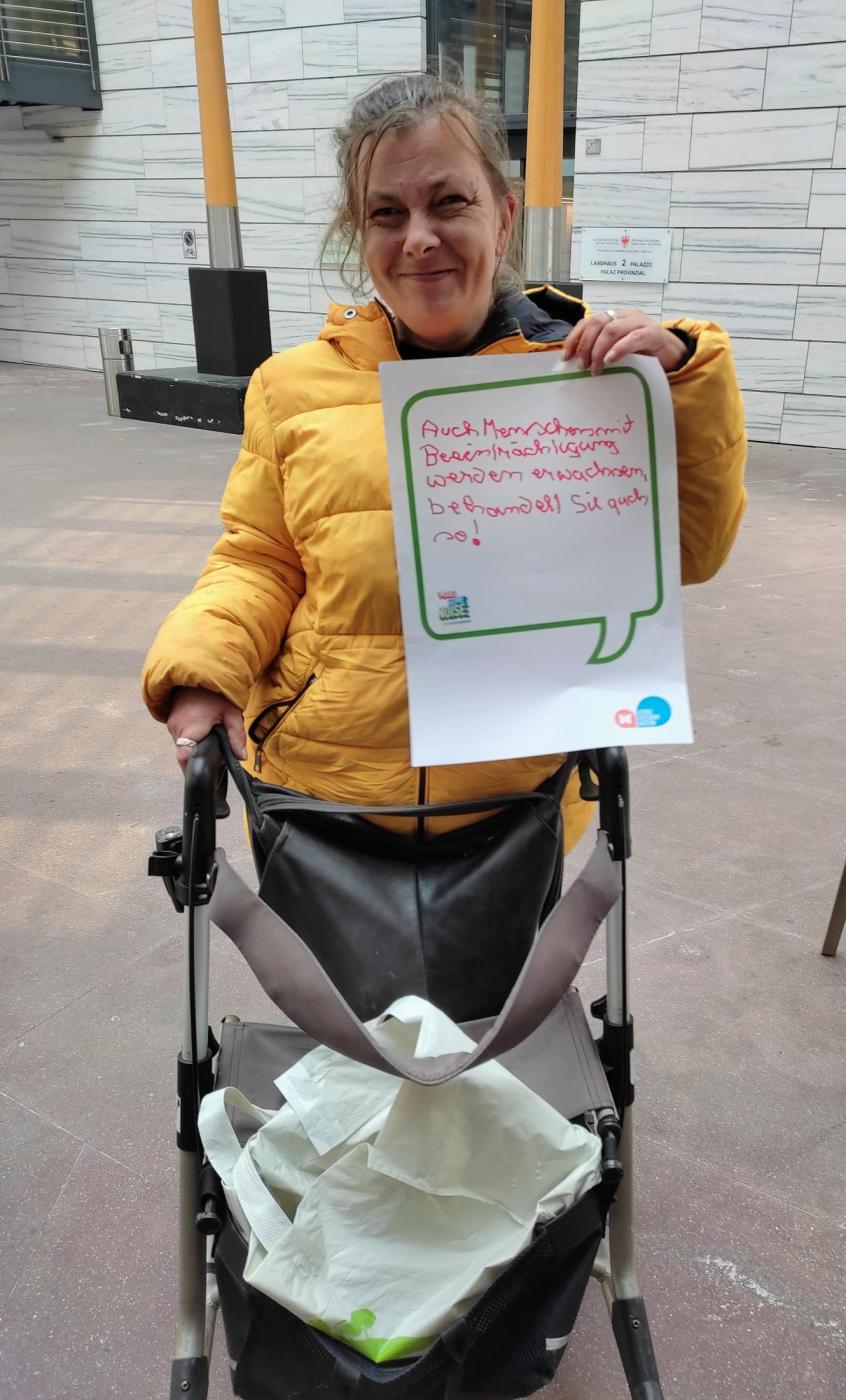 Auch Menschen mit
Beeinträchtigung
werden erwachsen,
behandelt Sie auch
so!
NOISE
LANDHAUS 2 PALAZZO
PALAZ PROVINZIAL